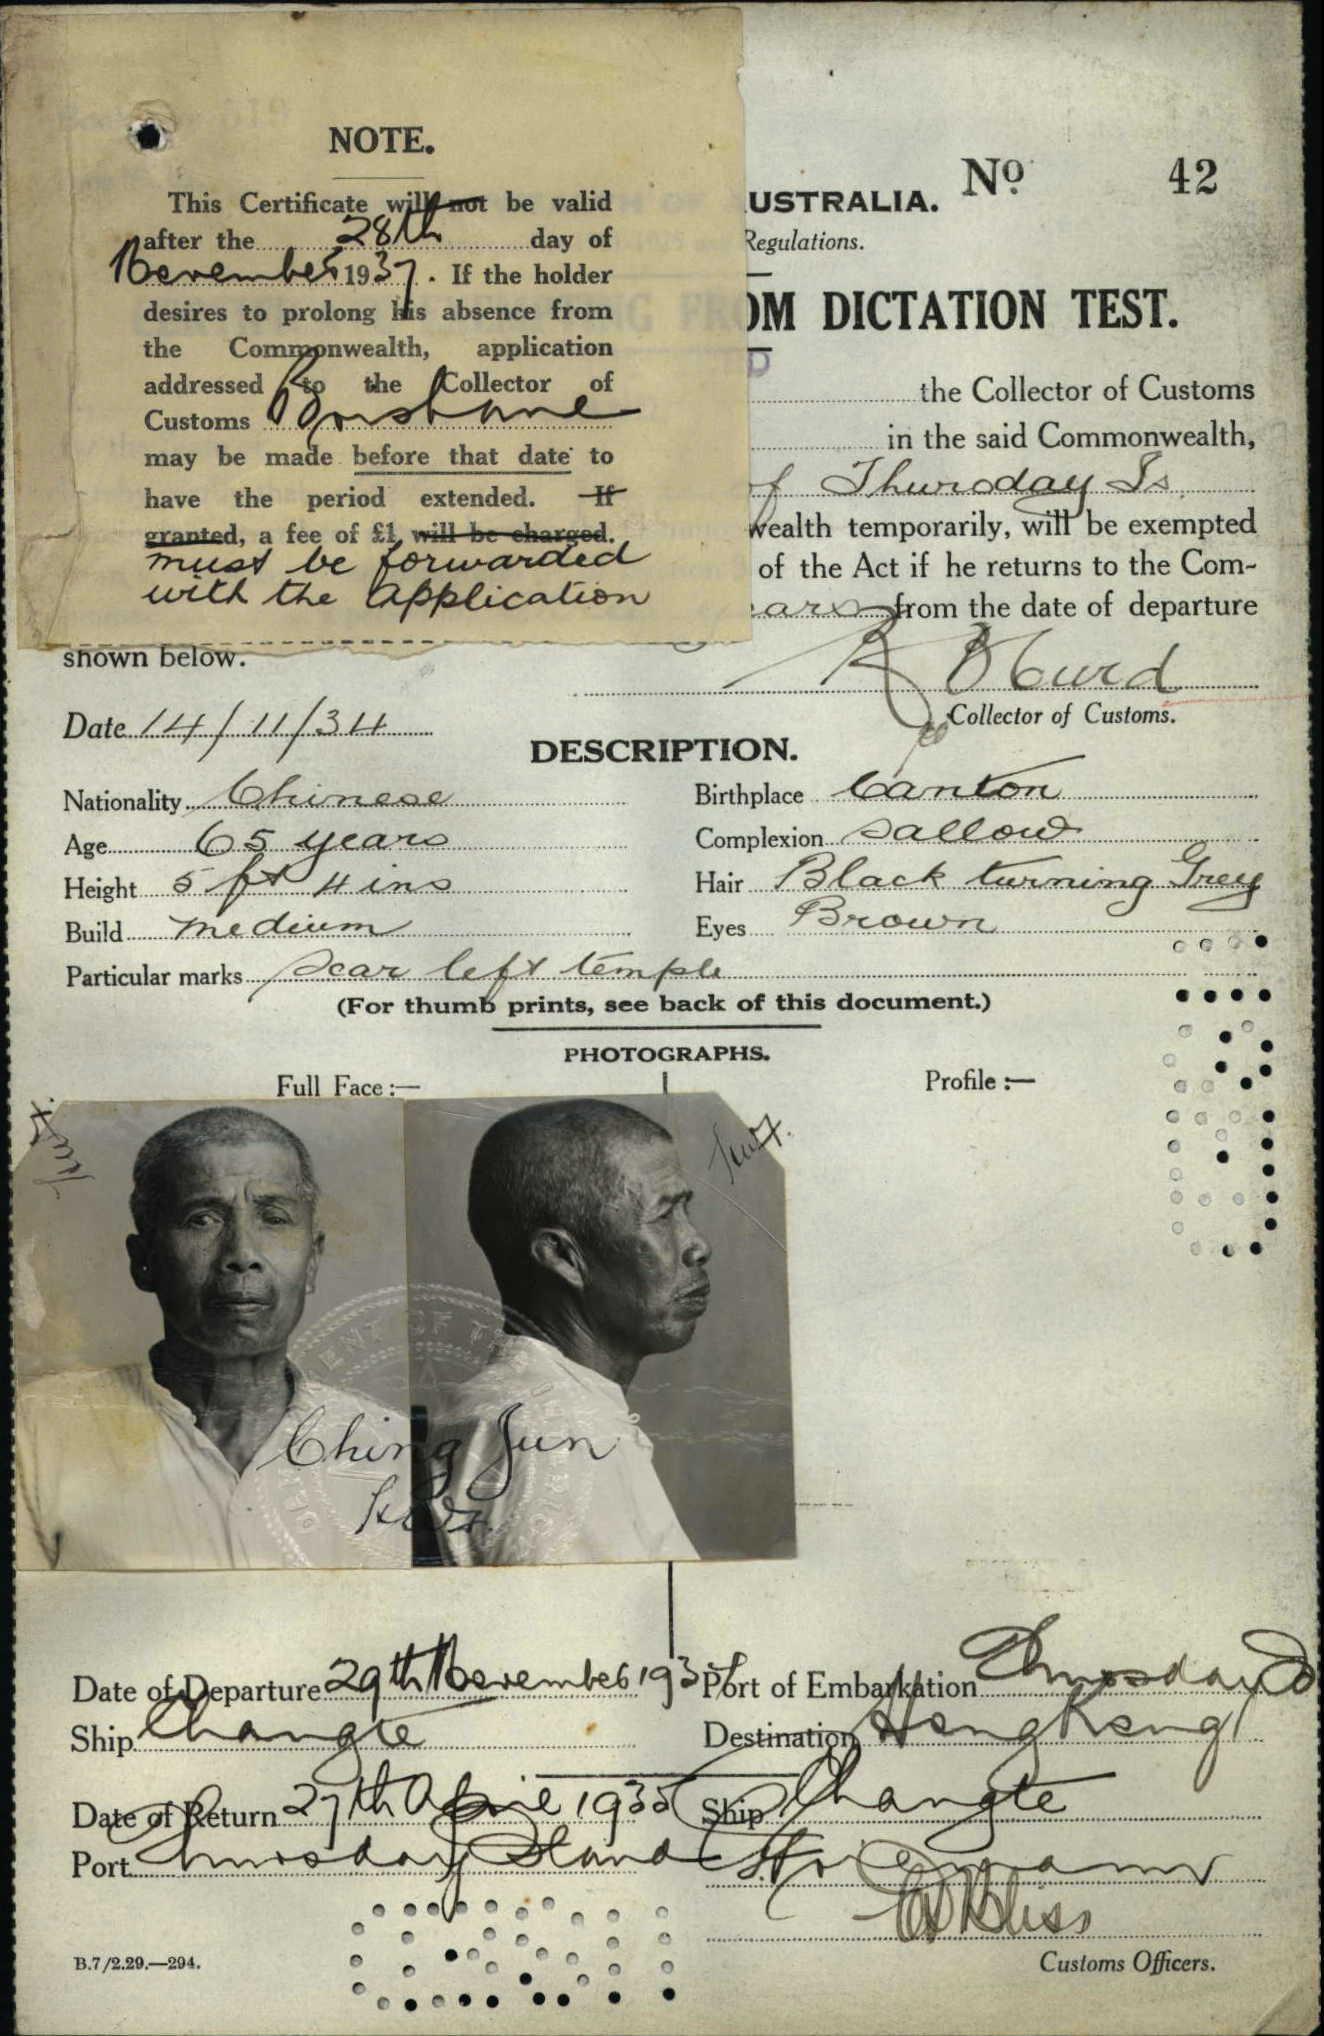 NOTE.
This Certificate will not be valid
after the 28th day of
November 1937. If the holder
desires to prolong his absence from
the Commonwealth, application
addressed to the Collector of
Customs Brisbane
may be made before that date to
have the period extended. If
granted, a fee of £1 will be charged.
must be forwarded
with the application
No. 42
USTRALIA.
Regulations.
OM DICTATION TEST.
D
the Collector of Customs
in the said Commonwealth,
of Thursday Is.
wealth temporarily, will be exempted
of the Act if he returns to the Com-
ears from the date of departure
shown below.
Collector of Customs.
Date 14/11/34
DESCRIPTION.
Nationality Chinese Birthplace Canton
Age 65 years Complexion Sallow
Height 5 ft 4 ins Hair Black turning Grey
Build medium Eyes Brown
Particular marks Scar left temple
(For thumb prints, see back of this document.)
PHOTOGRAPHS.
Full Face:— Profile:—
Ching Jun
Date of Departure 29th November 193 Port of Embarkation Thursday Is
Ship Changte Destination Hong Kong
Date of Return 27th April 1935 Ship Changte
Port Thursday Island
Bliss
B.7/2.29.—294. Customs Officers.